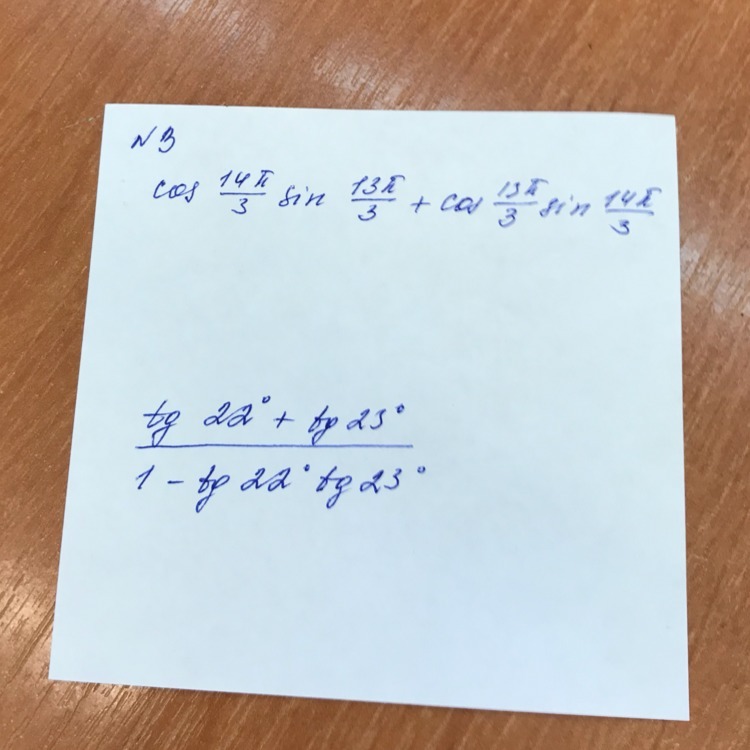 N3
cos 14π/3 sin 13π/3 + cos 13π/3 sin 14π/3
tg 22° + tg 23°
1 - tg 22° tg 23°